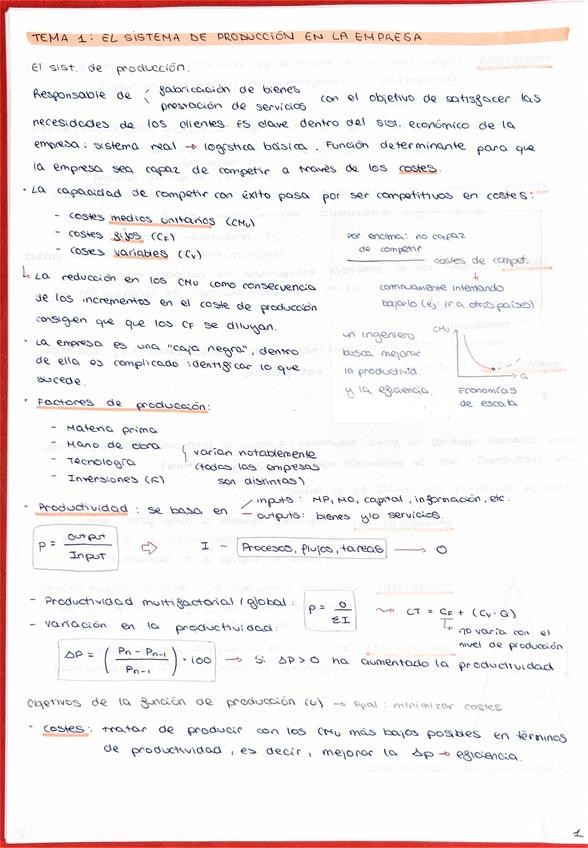 TEMA 1: EL SISTEMA DE PRODUCCIÓN EN LA EMPRESA
El sist. de producción.
Responsable de fabricación de bienes
prestación de servicios con el objetivo de satisfacer las
necesidades de los clientes. Es clave dentro del sist. económico de la
empresa: sistema real → logística básica. Función determinante para que
la empresa sea capaz de competir a través de los costes.
· La capacidad de competir con éxito pasa por ser competitivos en costes:
- costes medios unitarios (CMu)
- costes fijos (CF)
- costes variables (Cv)
La reducción en los CMu como consecuencia
de los incrementos en el coste de producción
consigen que que los CF se diluyan.
· La empresa es una "caja negra", dentro
de ella es complicado identificar lo que
sucede.
Por encima: no capaz
de competir
costes de compet.
↓
continuamente intentando
bajarlo (ej: ir a otros países)
un ingeniero
busca mejorar
la productivid.
y la eficiencia.
CMu
Q
Economías
de escala
· Factores de producción:
- Materia prima
- Mano de obra
- Tecnología
- Inversiones (R)
varían notablemente
(todas las empresas
son distintas)
· Productividad: se basa en inputs: MP, MO, capital, información, etc.
outputs: bienes y/o servicios.
P = output / Input ⇒ I — Procesos, flujos, tareas → O
- Productividad multifactorial / global: P = O / ΣI CT = CF + (Cv · Q)
no varía con el
nivel de producción
- Variación en la productividad:
ΔP = (Pn - Pn-1 / Pn-1) · 100 → Si ΔP > 0 ha aumentado la productividad
Objetivos de la función de producción (4) → Ppal: minimizar costes
· Costes: tratar de producir con los CMu más bajos posibles en términos
de productividad, es decir, mejorar la Δp → eficiencia.
1